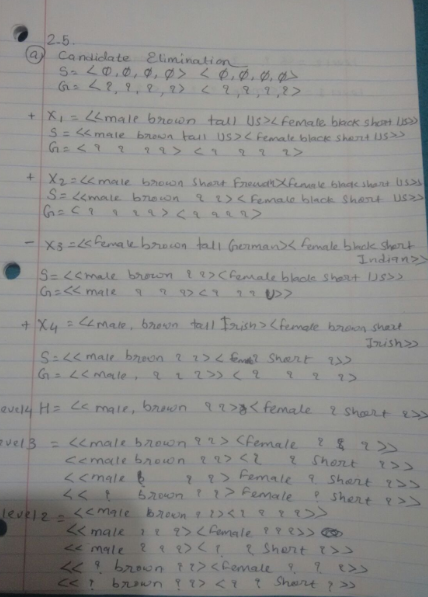 2.5.
(a) Candidate Elimination
S = < Ø, Ø, Ø, Ø> < Ø, Ø, Ø, Ø>
G = < ?, ?, ?, ?> < ?, ?, ?, ?>
+ X1 = <<male brown tall US><female black short US>>
S = <<male brown tall US><female black short US>>
G = < ? ? ? ?> < ? ? ? ?>
+ X2 = <<male brown short French><female black short US>>
S = <<male brown ? ?><female black short US>>
G = < ? ? ? ?> < ? ? ? ?>
- X3 = <<female brown tall German>< female black short
Indian>>
S = <<male brown ? ?><female black short US>>
G = <<male ? ? ?><? ? ? U>>
+ X4 = <<male, brown tall Irish><female brown short
Irish>>
S = <<male brown ? ?>< ? short ?>>
G = <<male, ? ? ?>> < ? ? ? ?>
level4 H = <<male, brown ? ?><female ? short ?>>
evel3 = <<male brown ? ?><female ? ? ?>>
<<male brown ? ?><? ? short ?>>
<<male ? ?> female ? short ?>>
<< ? brown ? ?> female ? short ?>>
level2 = <<male brown ? ?><? ? ? ?>>
<<male ? ? ?><female ? ? ?>>
<< male ? ? ?><? ? short ?>>
<< ? brown ? ?><female ? ? ?>>
<< ? brown ? ?> <? ? short ?>>